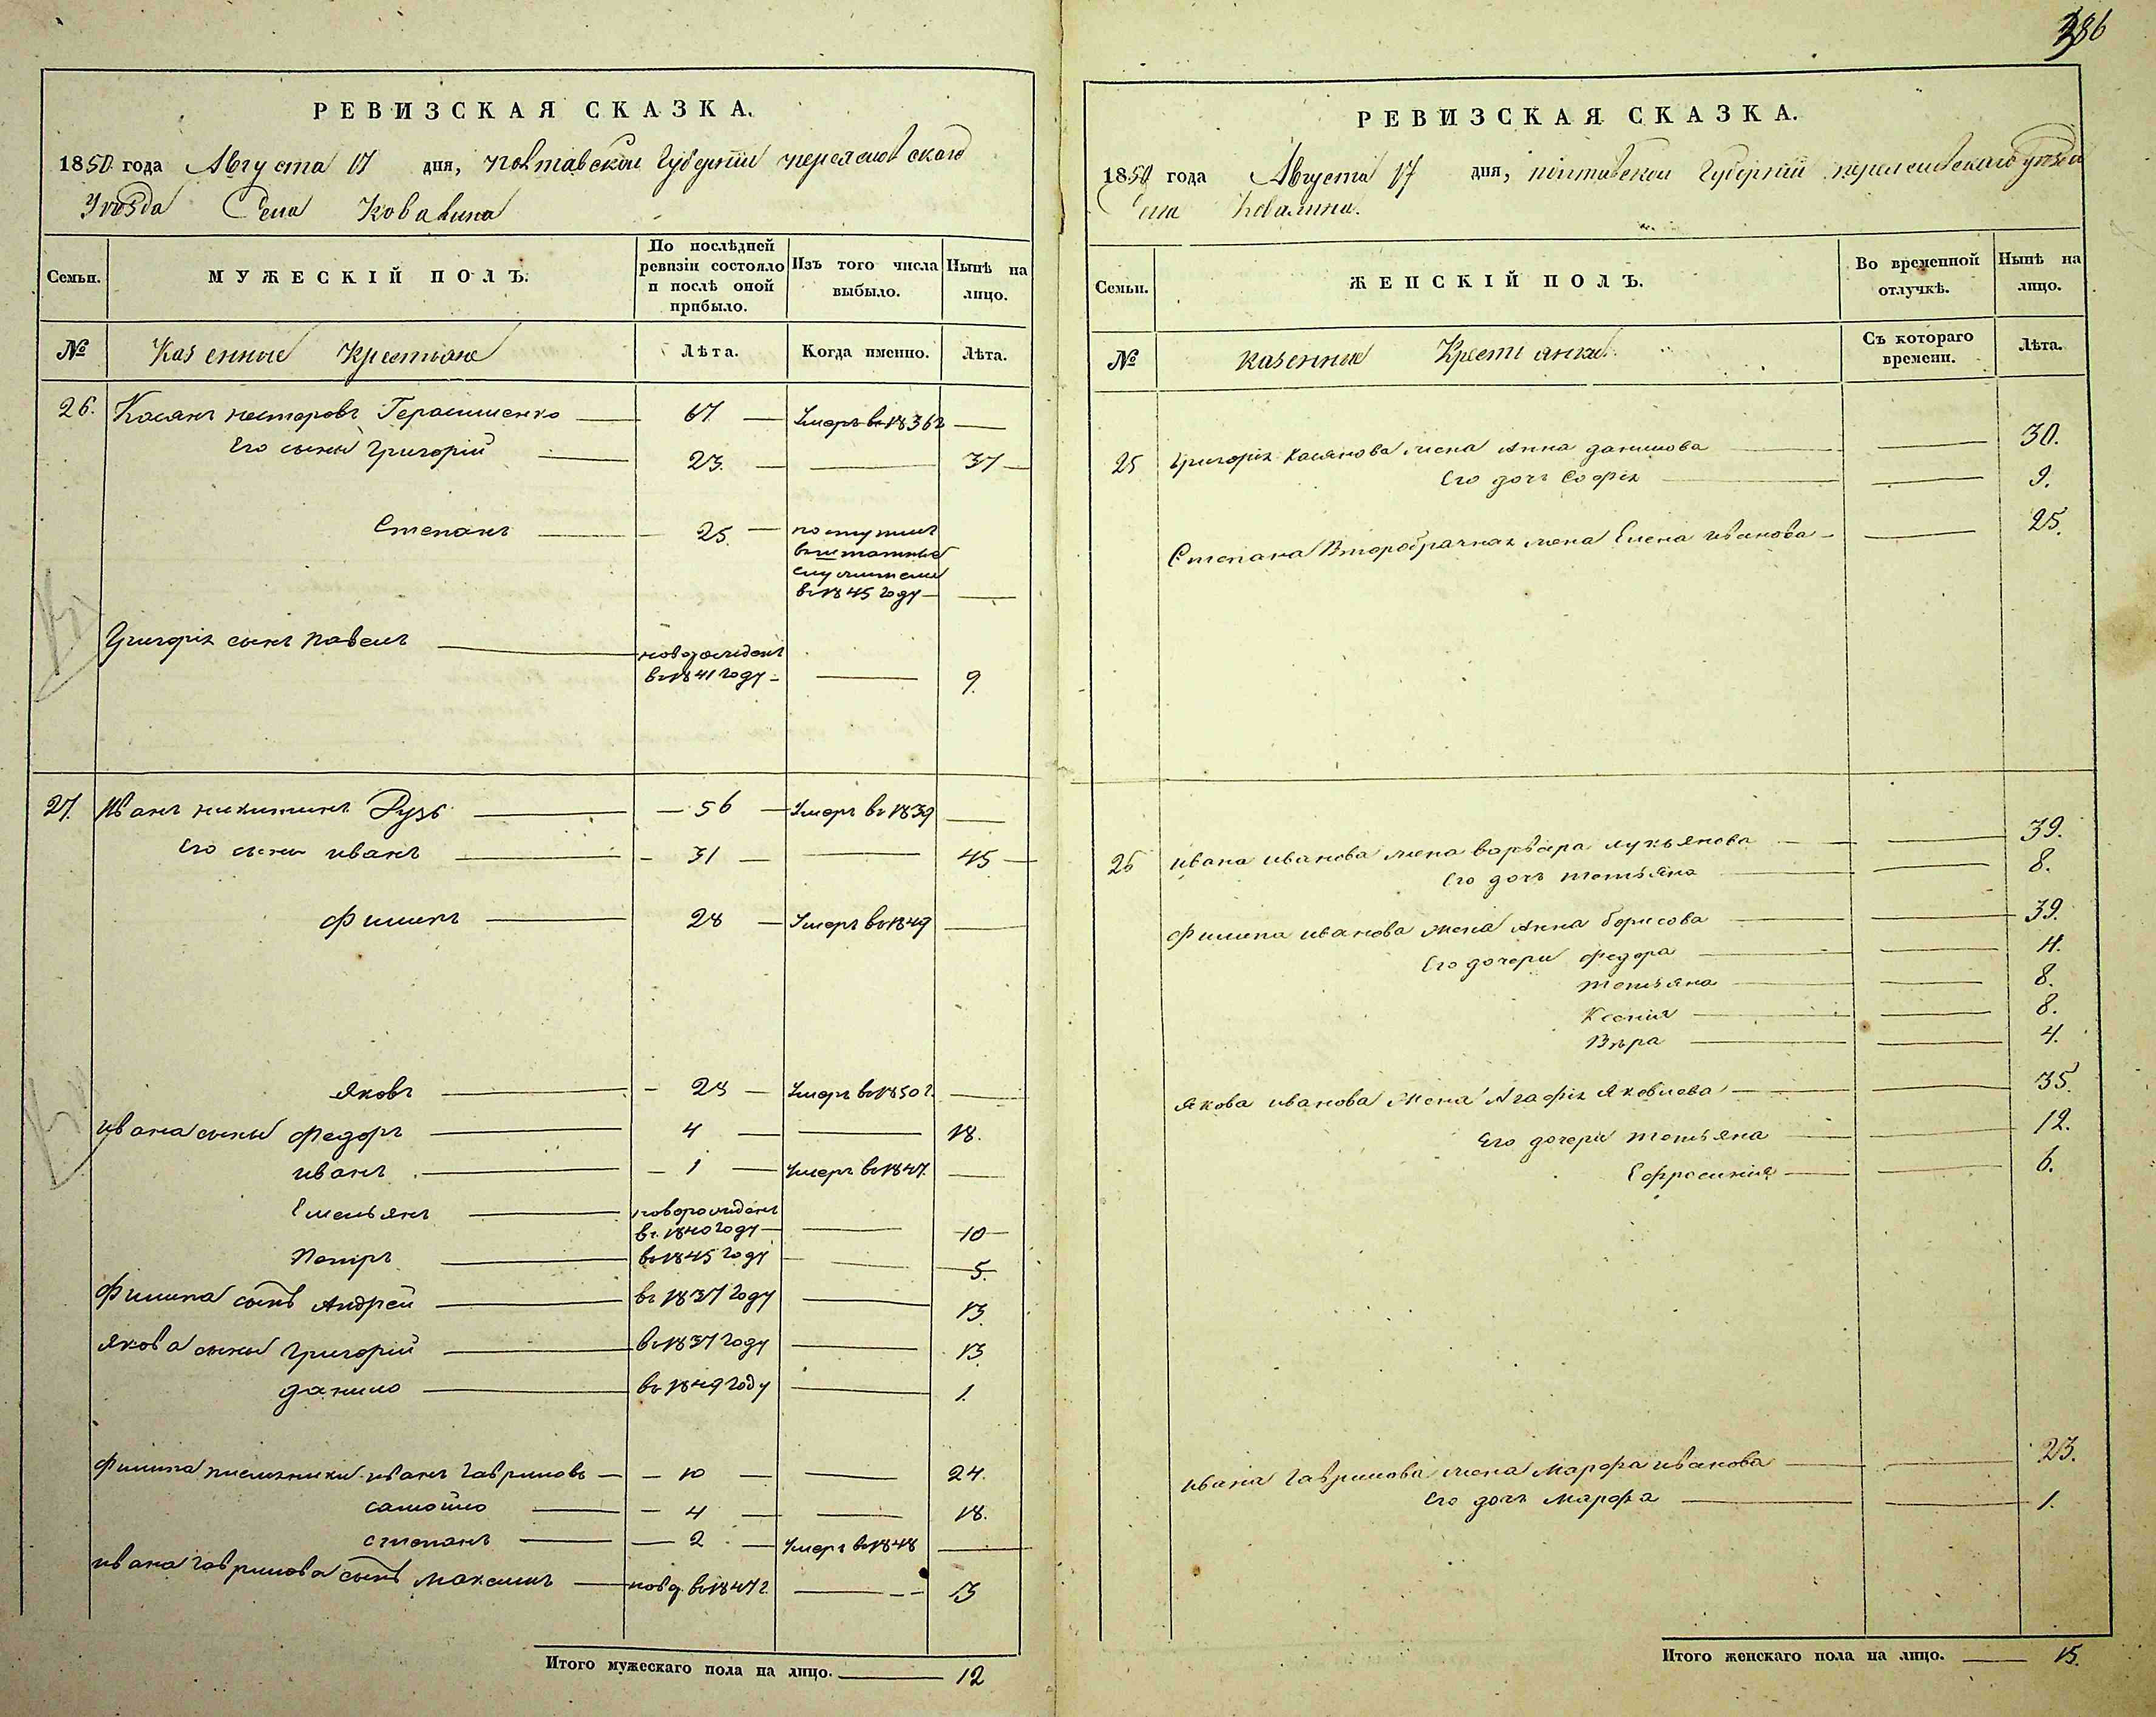 386
РЕВИЗСКАЯ СКАЗКА.
1850 года Августа 17 дня, полтавской Губерніи переяславского
Уѣзда Села Ковалина
Семьи.
МУЖЕСКІЙ ПОЛЪ.
По послѣдней ревизіи состояло и послѣ оной прибыло.
Изъ того числа выбыло.
Нынѣ на лицо.
№ Казенные Крестьяне Лѣта. Когда именно. Лѣта.
26. Касянъ нестеровъ Герасименко 67 Умеръ в 1836 г
Его сыны Григорій 23. 37
Степанъ 25 поступилъ
служители
въ 1845 году
Григорія сынъ павелъ новорожденъ
въ 1841 году 9.
27. Иванъ никитинъ Рузь 56 Умеръ въ 1839
Его сыны иванъ 31 45
филипъ 28 Умеръ въ 1849
яковъ 28 Умеръ въ 1850 г.
ивана сыны федоръ 4 18.
иванъ 1 Умеръ въ 1847.
Емельянъ новорожденъ
въ 1840 году 10
Петръ въ 1845 году 5.
филипа сынъ Андрей въ 1837 году 13.
якова сыны григорій въ 1837 году 13
данило въ 1849 году 1.
филипа племянники иванъ гавриловъ 10 24.
самойло 4 18.
степанъ 2 Умеръ въ 1848
ивана гаврилова сынъ максимъ 3
Итого мужескаго пола на лицо. 12
РЕВИЗСКАЯ СКАЗКА.
1850 года Августа 17 дня, полтавской Губерніи переяславскаго уѣзда
Села Ковалина.
Семьи.
ЖЕНСКІЙ ПОЛЪ.
Во временной отлучкѣ.
Нынѣ на лицо.
№ казенные Крестьянки Съ котораго времени. Лѣта.
25 Григорія касянова жена Анна данилова 30.
Его дочь Софія 9.
Степана Второбрачная жена Елена иванова 25.
26 ивана иванова жена варвара лукьянова 39.
Его дочь татьяна 8.
филипа иванова жена Анна борисова 39.
Его дочери федора 11.
татьяна 8.
Ксенія 8.
Вѣра 4.
якова иванова жена Агафія яковлева 35.
Его дочери татьяна 12.
Ефросинія 6.
ивана гаврилова жена марфа иванова 23.
Его дочь марфа 1.
Итого женскаго пола на лицо. 15.